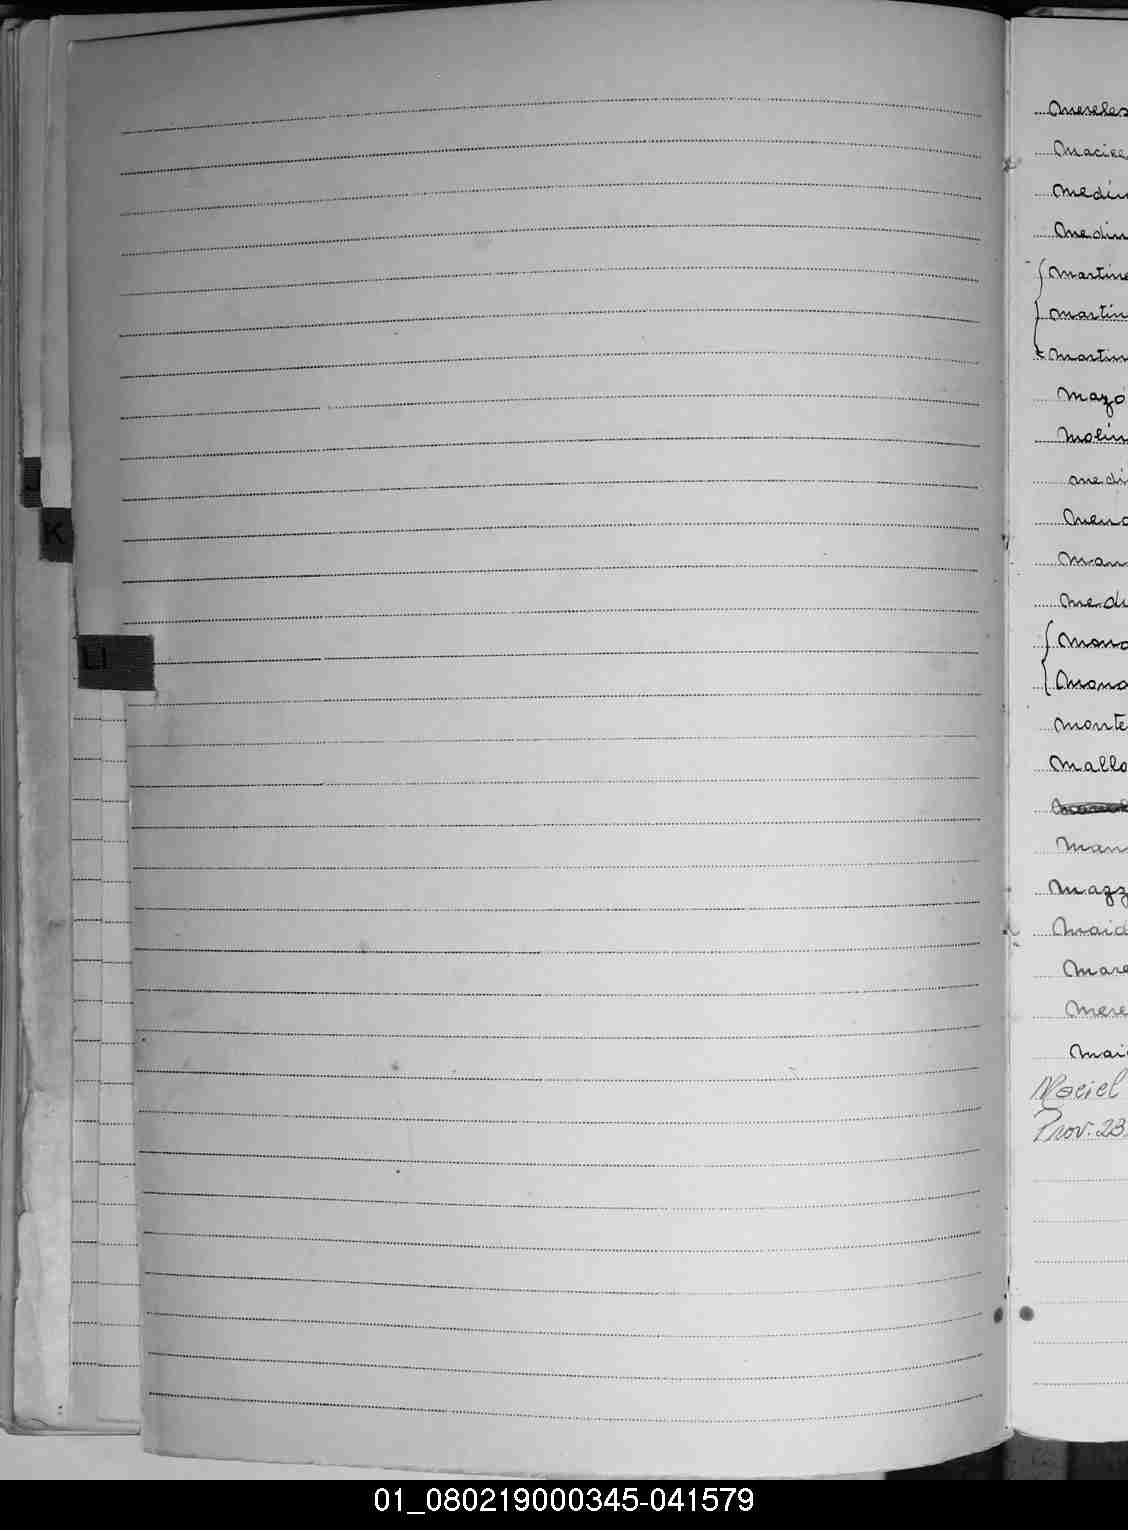 J
K
Ll
Mereles
Maciel
Medin
Medin
Martine
Martin
Martin
Mazó
Molin
Medi
Mend
Man
Medi
Mono
Mono
Monte
Mallo
Man
Mazz
Maid
Mare
Mere
Mai
Maciel
Prov. 23
01_080219000345-041579